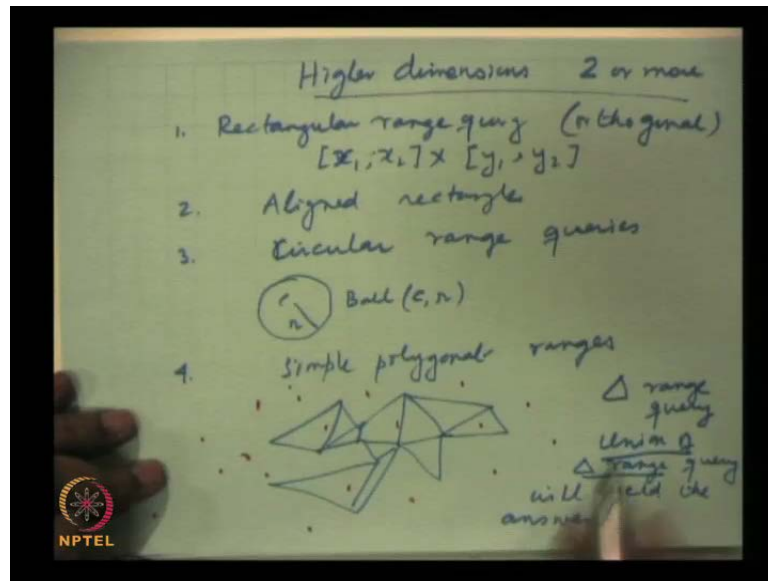 Higher dimensions 2 or more
1. Rectangular range query (orthogonal)
[x1, x2] x [y1, y2]
2. Aligned rectangles
3. Circular range queries
c
r
Ball (c, r)
4. Simple polygonal ranges
△ range
query
Union of
△ range query
will yield the
answer
NPTEL